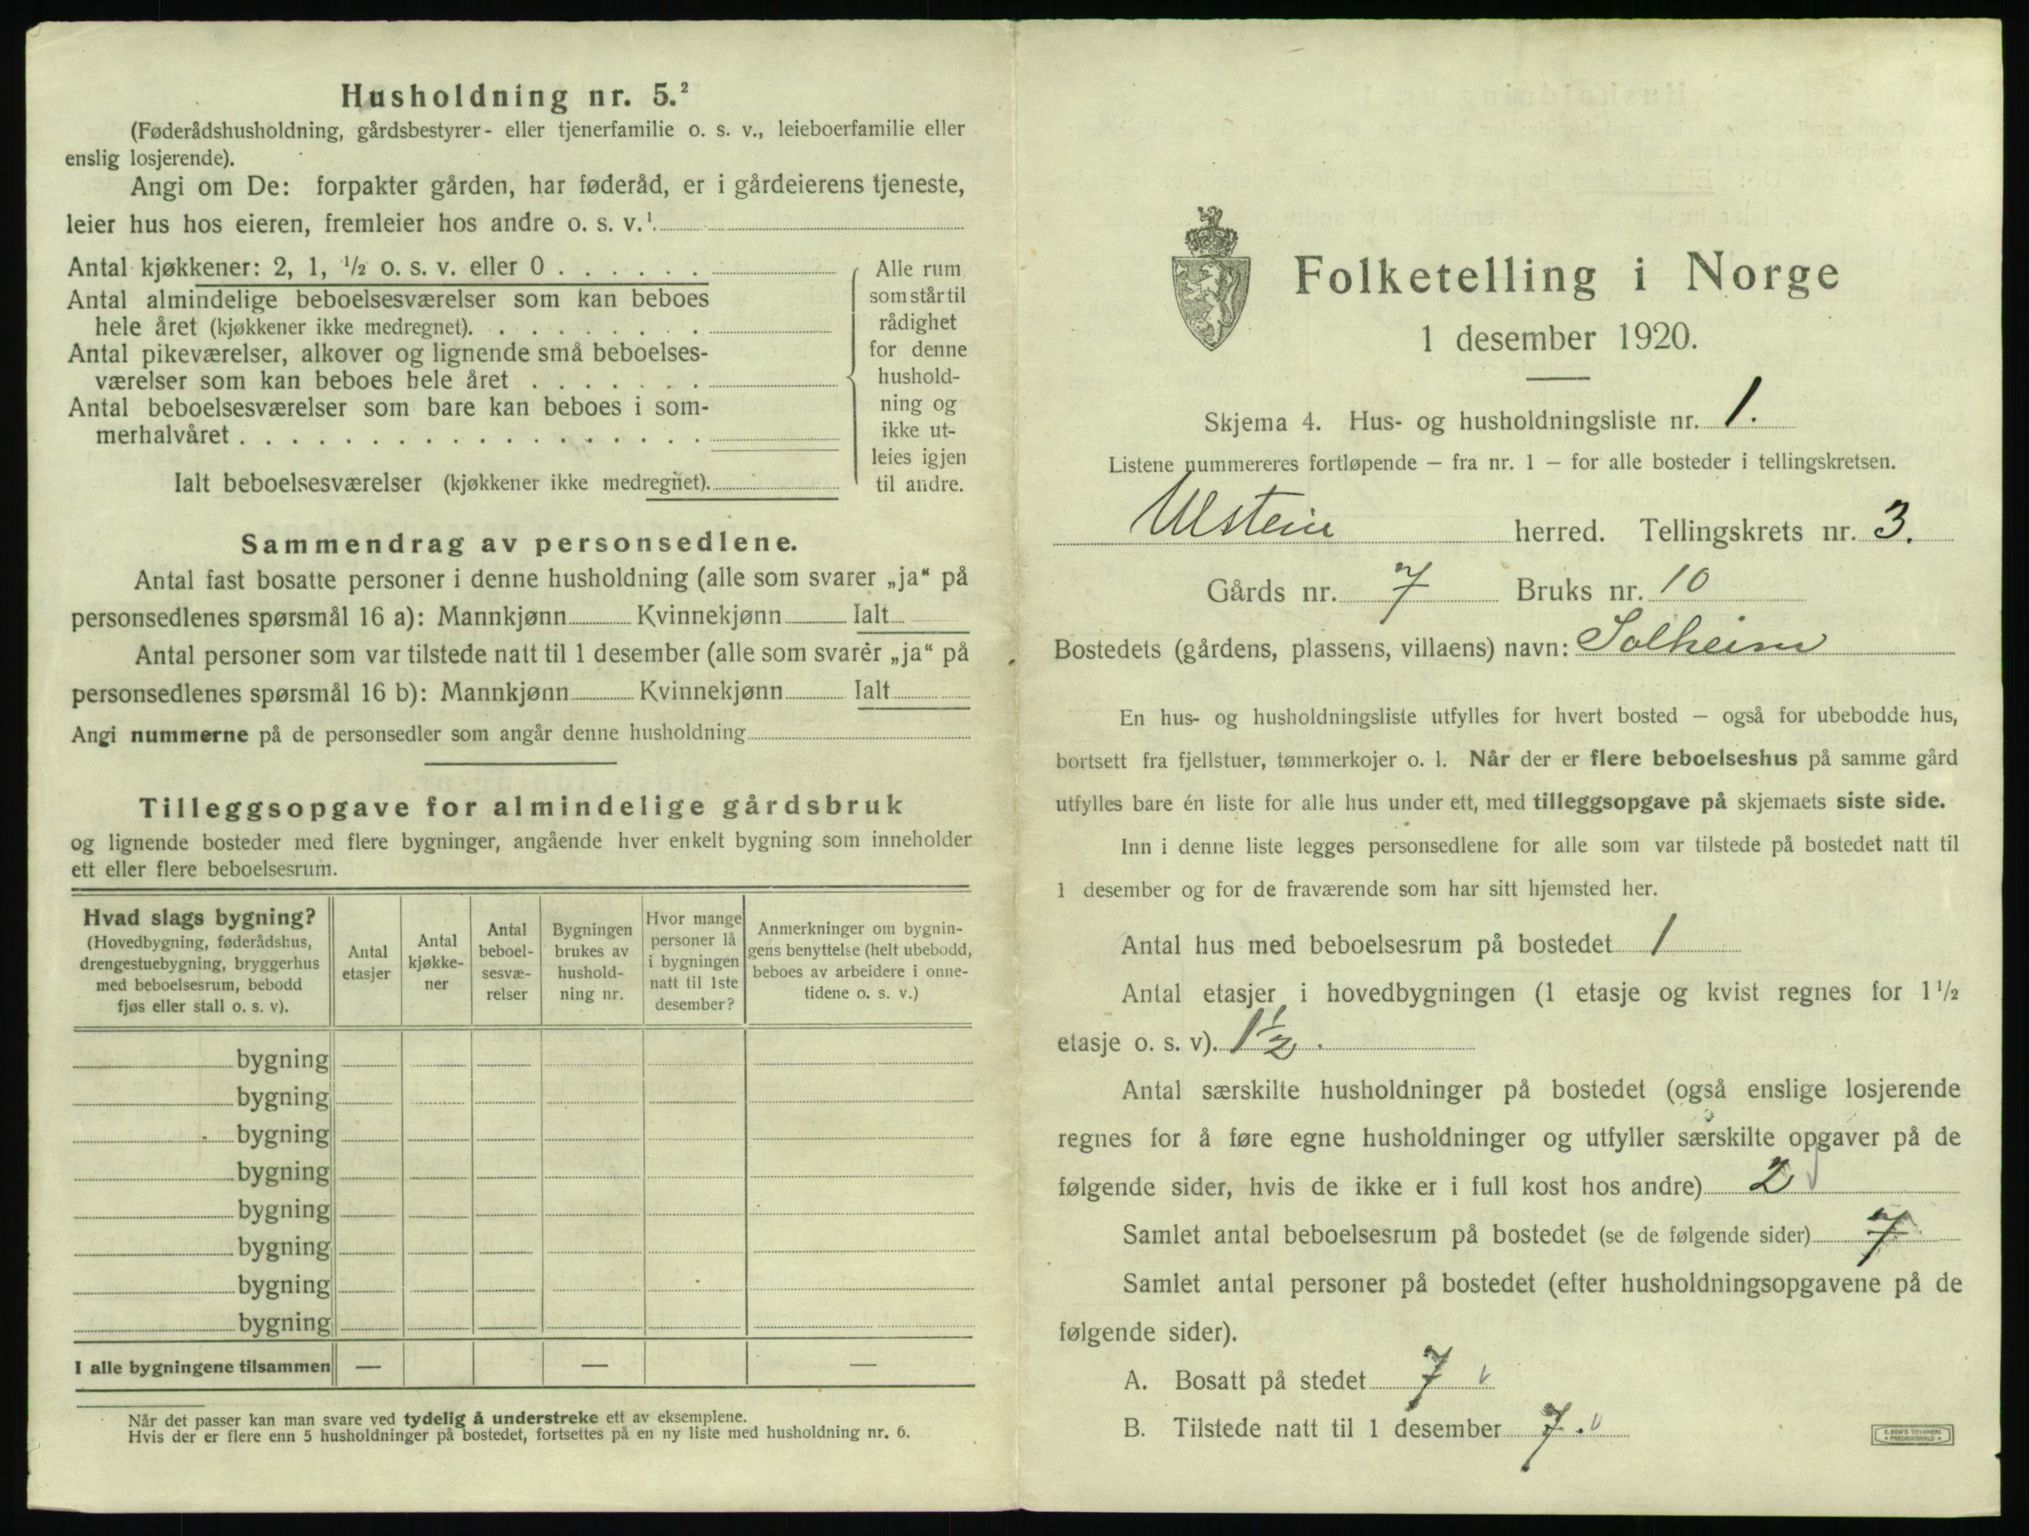 Husholdning nr. 5.²
(Føderådshusholdning, gårdsbestyrer- eller tjenerfamilie o. s. v., leieboerfamilie eller
enslig losjerende).
Angi om De: forpakter gården, har føderåd, er i gårdeierens tjeneste,
leier hus hos eieren, fremleier hos andre o. s. v.¹
Antal kjøkkener: 2, 1, ½ o. s. v. eller 0 . . . . . .
Antal almindelige beboelsesværelser som kan beboes
hele året (kjøkkener ikke medregnet). . . . . . . . .
Antal pikeværelser, alkover og lignende små beboelses-
værelser som kan beboes hele året . . . . . . .
Antal beboelsesværelser som bare kan beboes i som-
merhalvåret . . . . . . . . . . . . . . . . . .
Alle rum
som står til
rådighet
for denne
hushold-
ning og
ikke ut-
leies igjen
til andre.
Ialt beboelsesværelser (kjøkkener ikke medregnet).
Sammendrag av personsedlene.
Antal fast bosatte personer i denne husholdning (alle som svarer „ja“ på
personsedlenes spørsmål 16 a): Mannkjønn Kvinnekjønn Ialt
Antal personer som var tilstede natt til 1 desember (alle som svarer „ja“ på
personsedlenes spørsmål 16 b): Mannkjønn Kvinnekjønn Ialt
Angi nummerne på de personsedler som angår denne husholdning
Tilleggsopgave for almindelige gårdsbruk
og lignende bosteder med flere bygninger, angående hver enkelt bygning som inneholder
ett eller flere beboelsesrum.
Hvad slags bygning?
(Hovedbygning, føderådshus,
drengestuebygning, bryggerhus
med beboelsesrum, bebodd
fjøs eller stall o. s. v).
Antal
etasjer
Antal
kjøkke-
ner
Antal
beboel-
sesvæ-
relser
Bygningen
brukes av
hushold-
ning nr.
Hvor mange
personer lå
i bygningen
natt til 1ste
desember?
Anmerkninger om bygnin-
gens benyttelse (helt ubebodd,
beboes av arbeidere i onne-
tidene o. s. v.)
bygning
bygning
bygning
bygning
bygning
bygning
bygning
bygning
I alle bygningene tilsammen — — —
Når det passer kan man svare ved tydelig å understreke ett av eksemplene.
Hvis der er flere enn 5 husholdninger på bostedet, fortsettes på en ny liste med husholdning nr. 6.
Folketelling i Norge
1 desember 1920.
Skjema 4. Hus- og husholdningsliste nr. 1.
Listene nummereres fortløpende – fra nr. 1 – for alle bosteder i tellingskretsen.
Ulstein herred. Tellingskrets nr. 3.
Gårds nr. 7 Bruks nr. 10
Bostedets (gårdens, plassens, villaens) navn: Solheim
En hus- og husholdningsliste utfylles for hvert bosted – også for ubebodde hus,
bortsett fra fjellstuer, tømmerkojer o. l. Når der er flere beboelseshus på samme gård
utfylles bare én liste for alle hus under ett, med tilleggsopgave på skjemaets siste side.
Inn i denne liste legges personsedlene for alle som var tilstede på bostedet natt til
1 desember og for de fraværende som har sitt hjemsted her.
Antal hus med beboelsesrum på bostedet 1
Antal etasjer i hovedbygningen (1 etasje og kvist regnes for 1½
etasje o. s. v). 1½.
Antal særskilte husholdninger på bostedet (også enslige losjerende
regnes for å føre egne husholdninger og utfyller særskilte opgaver på de
følgende sider, hvis de ikke er i full kost hos andre) 2
Samlet antal beboelsesrum på bostedet (se de følgende sider) 7
Samlet antal personer på bostedet (efter husholdningsopgavene på de
følgende sider).
A. Bosatt på stedet 7
B. Tilstede natt til 1 desember 7.
E. SEM'S TRYKKERI
FREDRIKSHALD